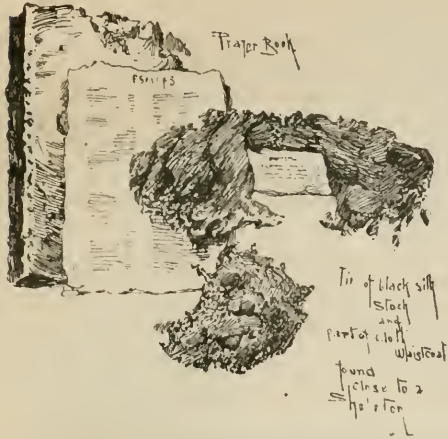 Prayer Book
Tie of black silk
Stock
and
part of cloth
Waistcoat
found
close to a